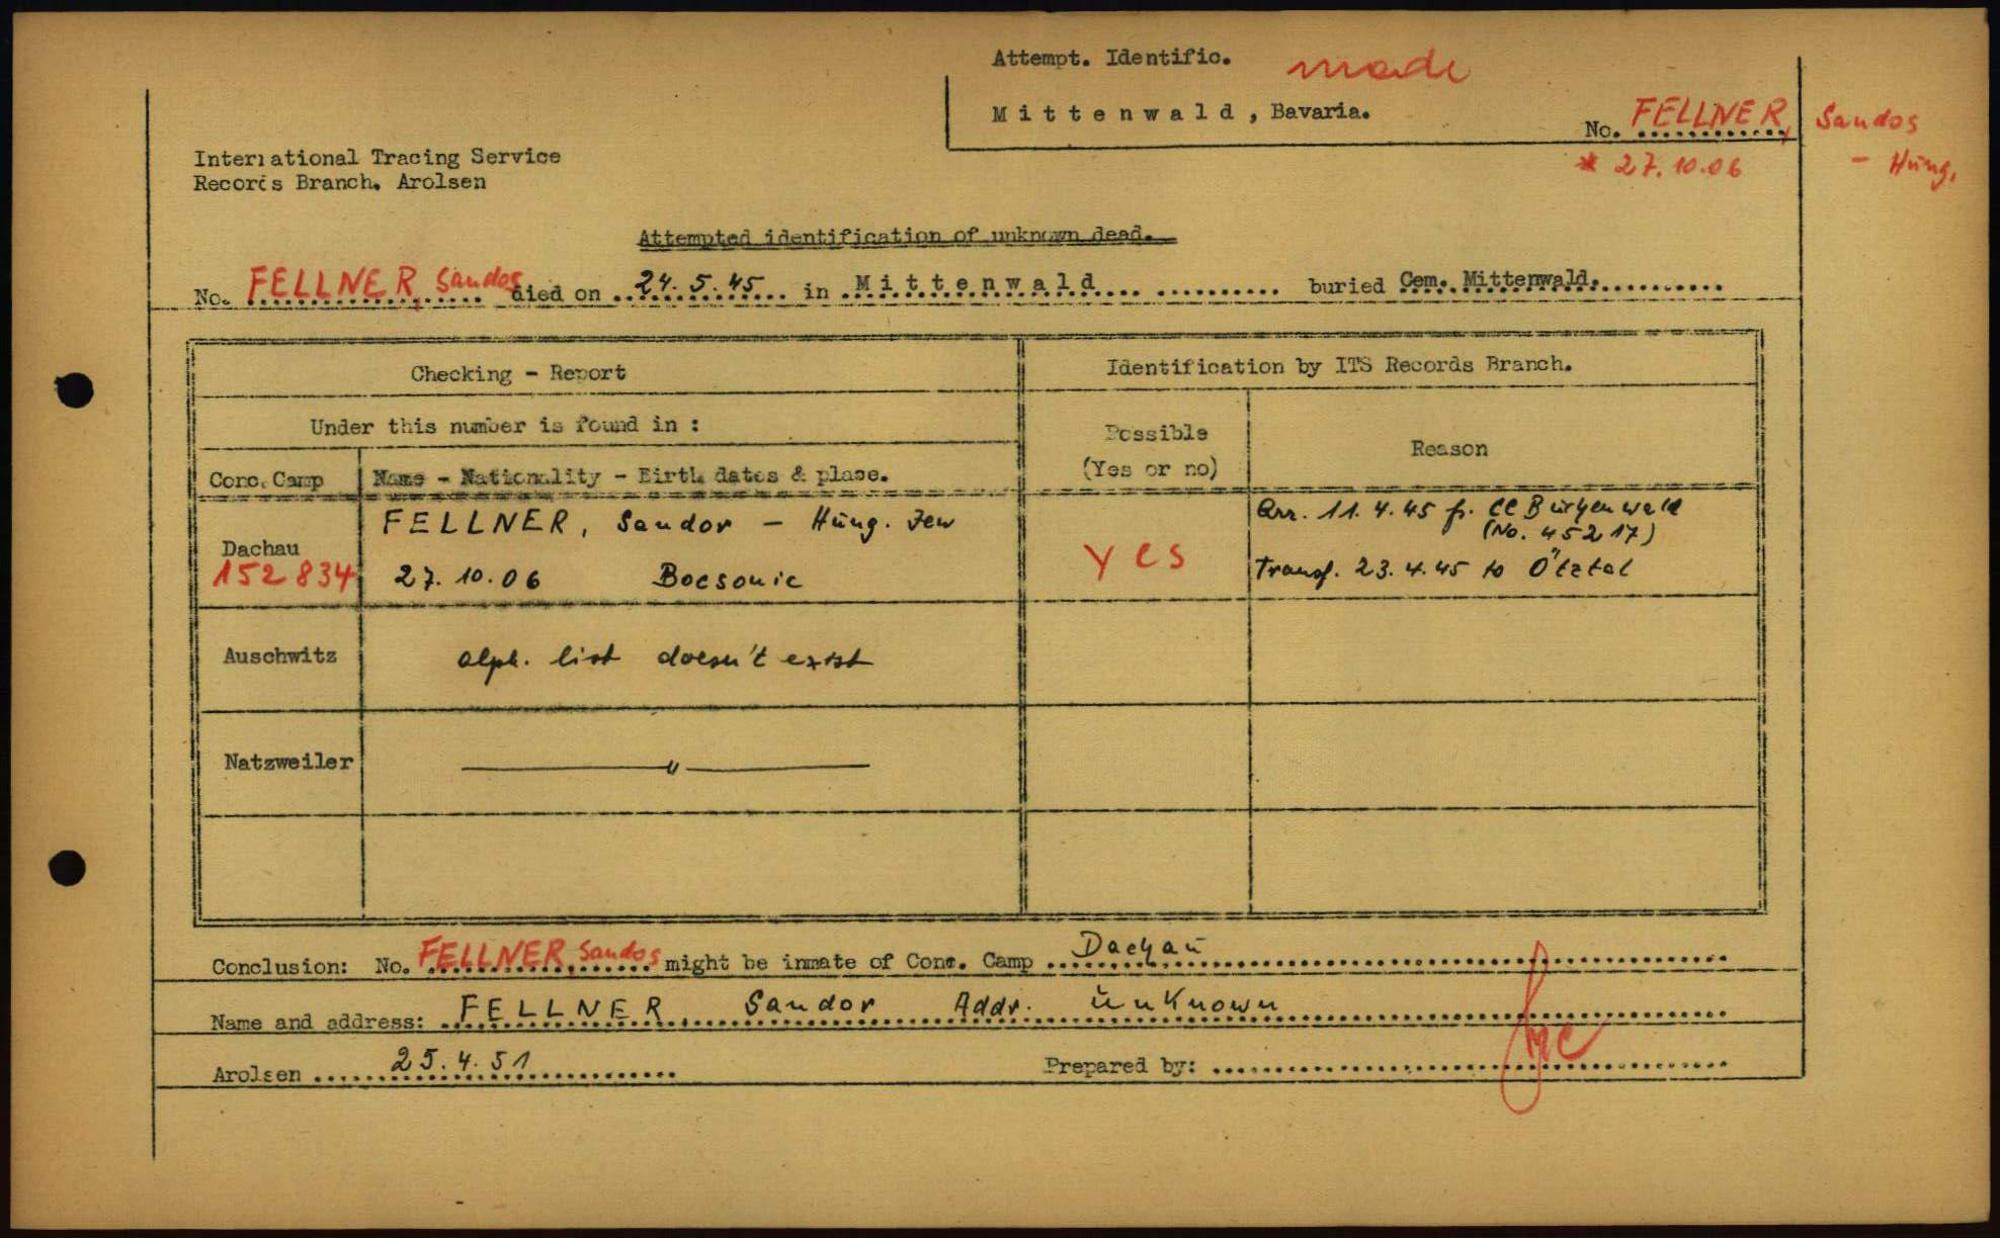 Attempt. Identific. made
Mittenwald, Bavaria.
No. FELLNER, Sandos
* 27.10.06 - Hung.
International Tracing Service
Records Branch. Arolsen
Attempted identification of unknown dead.
No. FELLNER, Sandos died on 24.5.45 in Mittenwald buried Cem. Mittenwald.
Checking - Report
Identification by ITS Records Branch.
Under this number is found in :
Possible
(Yes or no)
Reason
Conc. Camp
Name - Nationality - Birth dates & place.
Dachau
152834
FELLNER, Sandor - Hung. Jew
27.10.06 Bocsonic
yes
Arr. 11.4.45 fr. CC Buchenwald
(No. 45217)
Transf. 23.4.45 to Ötztal
Auschwitz
alph. list doesn't exist
Natzweiler
——— " ———
Conclusion: No. FELLNER, Sandos might be inmate of Conc. Camp Dachau
Name and address: FELLNER Sandor Addr. unknown
Arolsen 25.4.51
Prepared by: